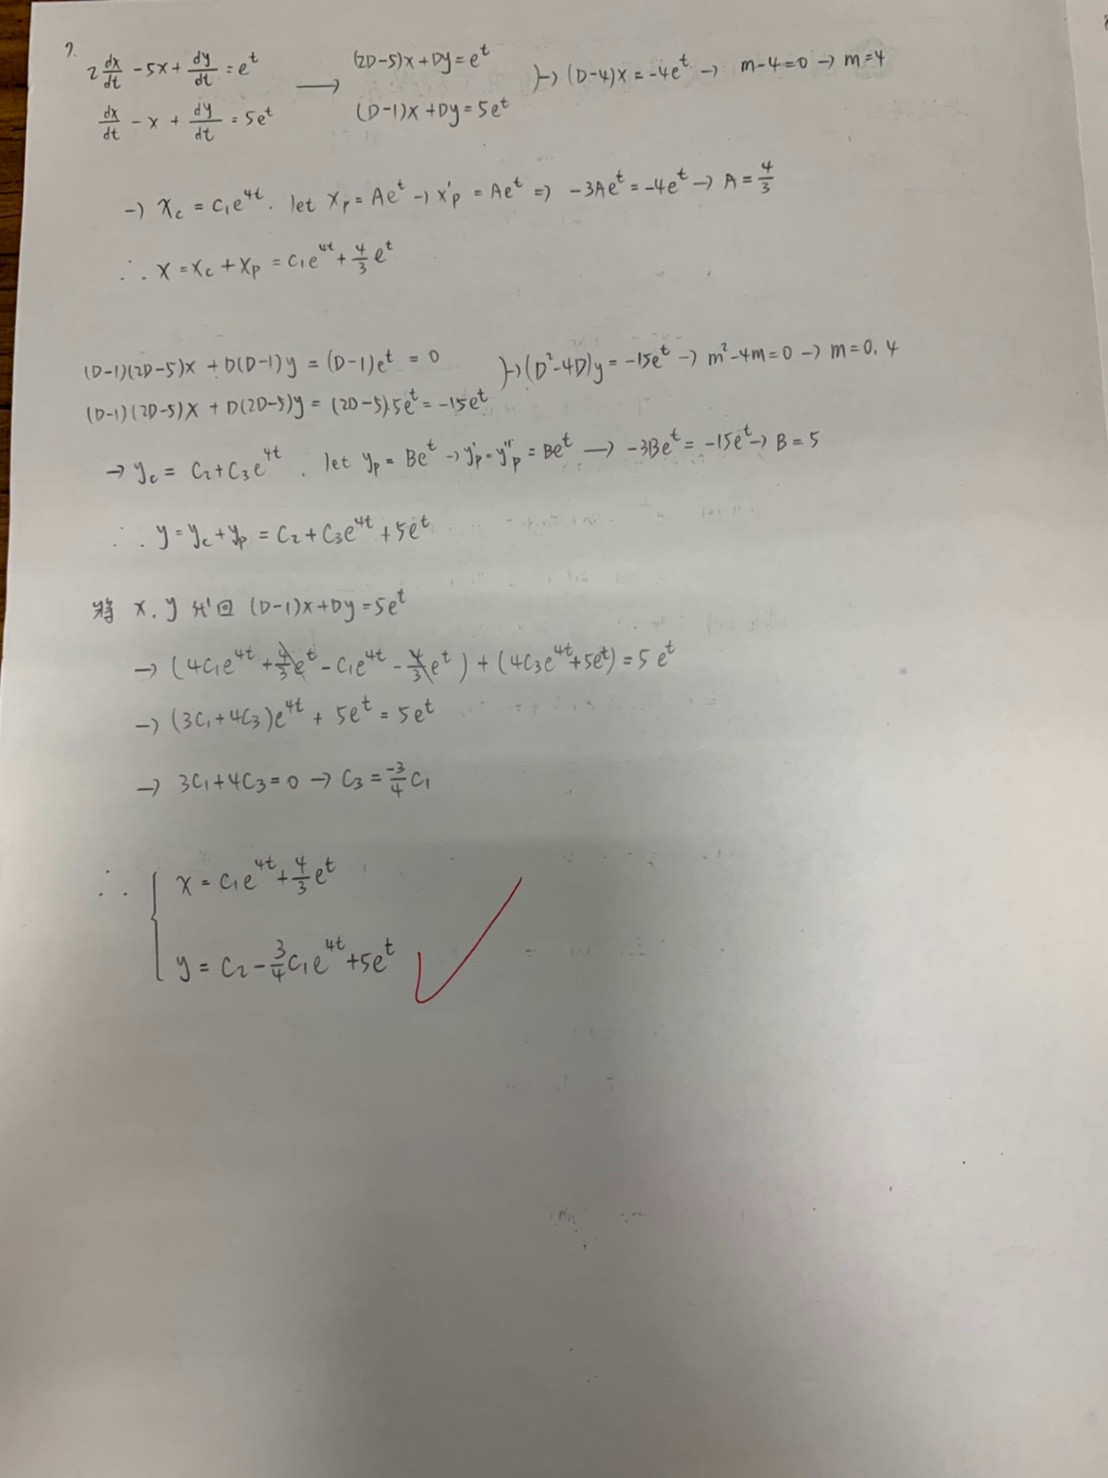 7.
2 dx/dt - 5x + dy/dt = e^t → (2D-5)x + Dy = e^t } → (D-4)x = -4e^t → m-4=0 → m=4
dx/dt - x + dy/dt = 5e^t (D-1)x + Dy = 5e^t
→ x_c = c₁e^{4t}. let x_p = Ae^t → x'_p = Ae^t ⇒ -3Ae^t = -4e^t → A = 4/3
∴ x = x_c + x_p = c₁e^{4t} + 4/3 e^t
(D-1)(2D-5)x + D(D-1)y = (D-1)e^t = 0 } → (D²-4D)y = -15e^t → m²-4m=0 → m=0, 4
(D-1)(2D-5)x + D(2D-5)y = (2D-5)·5e^t = -15e^t
→ y_c = c₂ + c₃e^{4t}. let y_p = Be^t → y'_p = y''_p = Be^t → -3Be^t = -15e^t → B = 5
∴ y = y_c + y_p = c₂ + c₃e^{4t} + 5e^t
將 x, y 代回 (D-1)x + Dy = 5e^t
→ (4c₁e^{4t} + 4/3 e^t - c₁e^{4t} - 4/3 e^t) + (4c₃e^{4t} + 5e^t) = 5e^t
→ (3c₁+4c₃)e^{4t} + 5e^t = 5e^t
→ 3c₁+4c₃=0 → c₃ = -3/4 c₁
∴ { x = c₁e^{4t} + 4/3 e^t
y = c₂ - 3/4 c₁e^{4t} + 5e^t